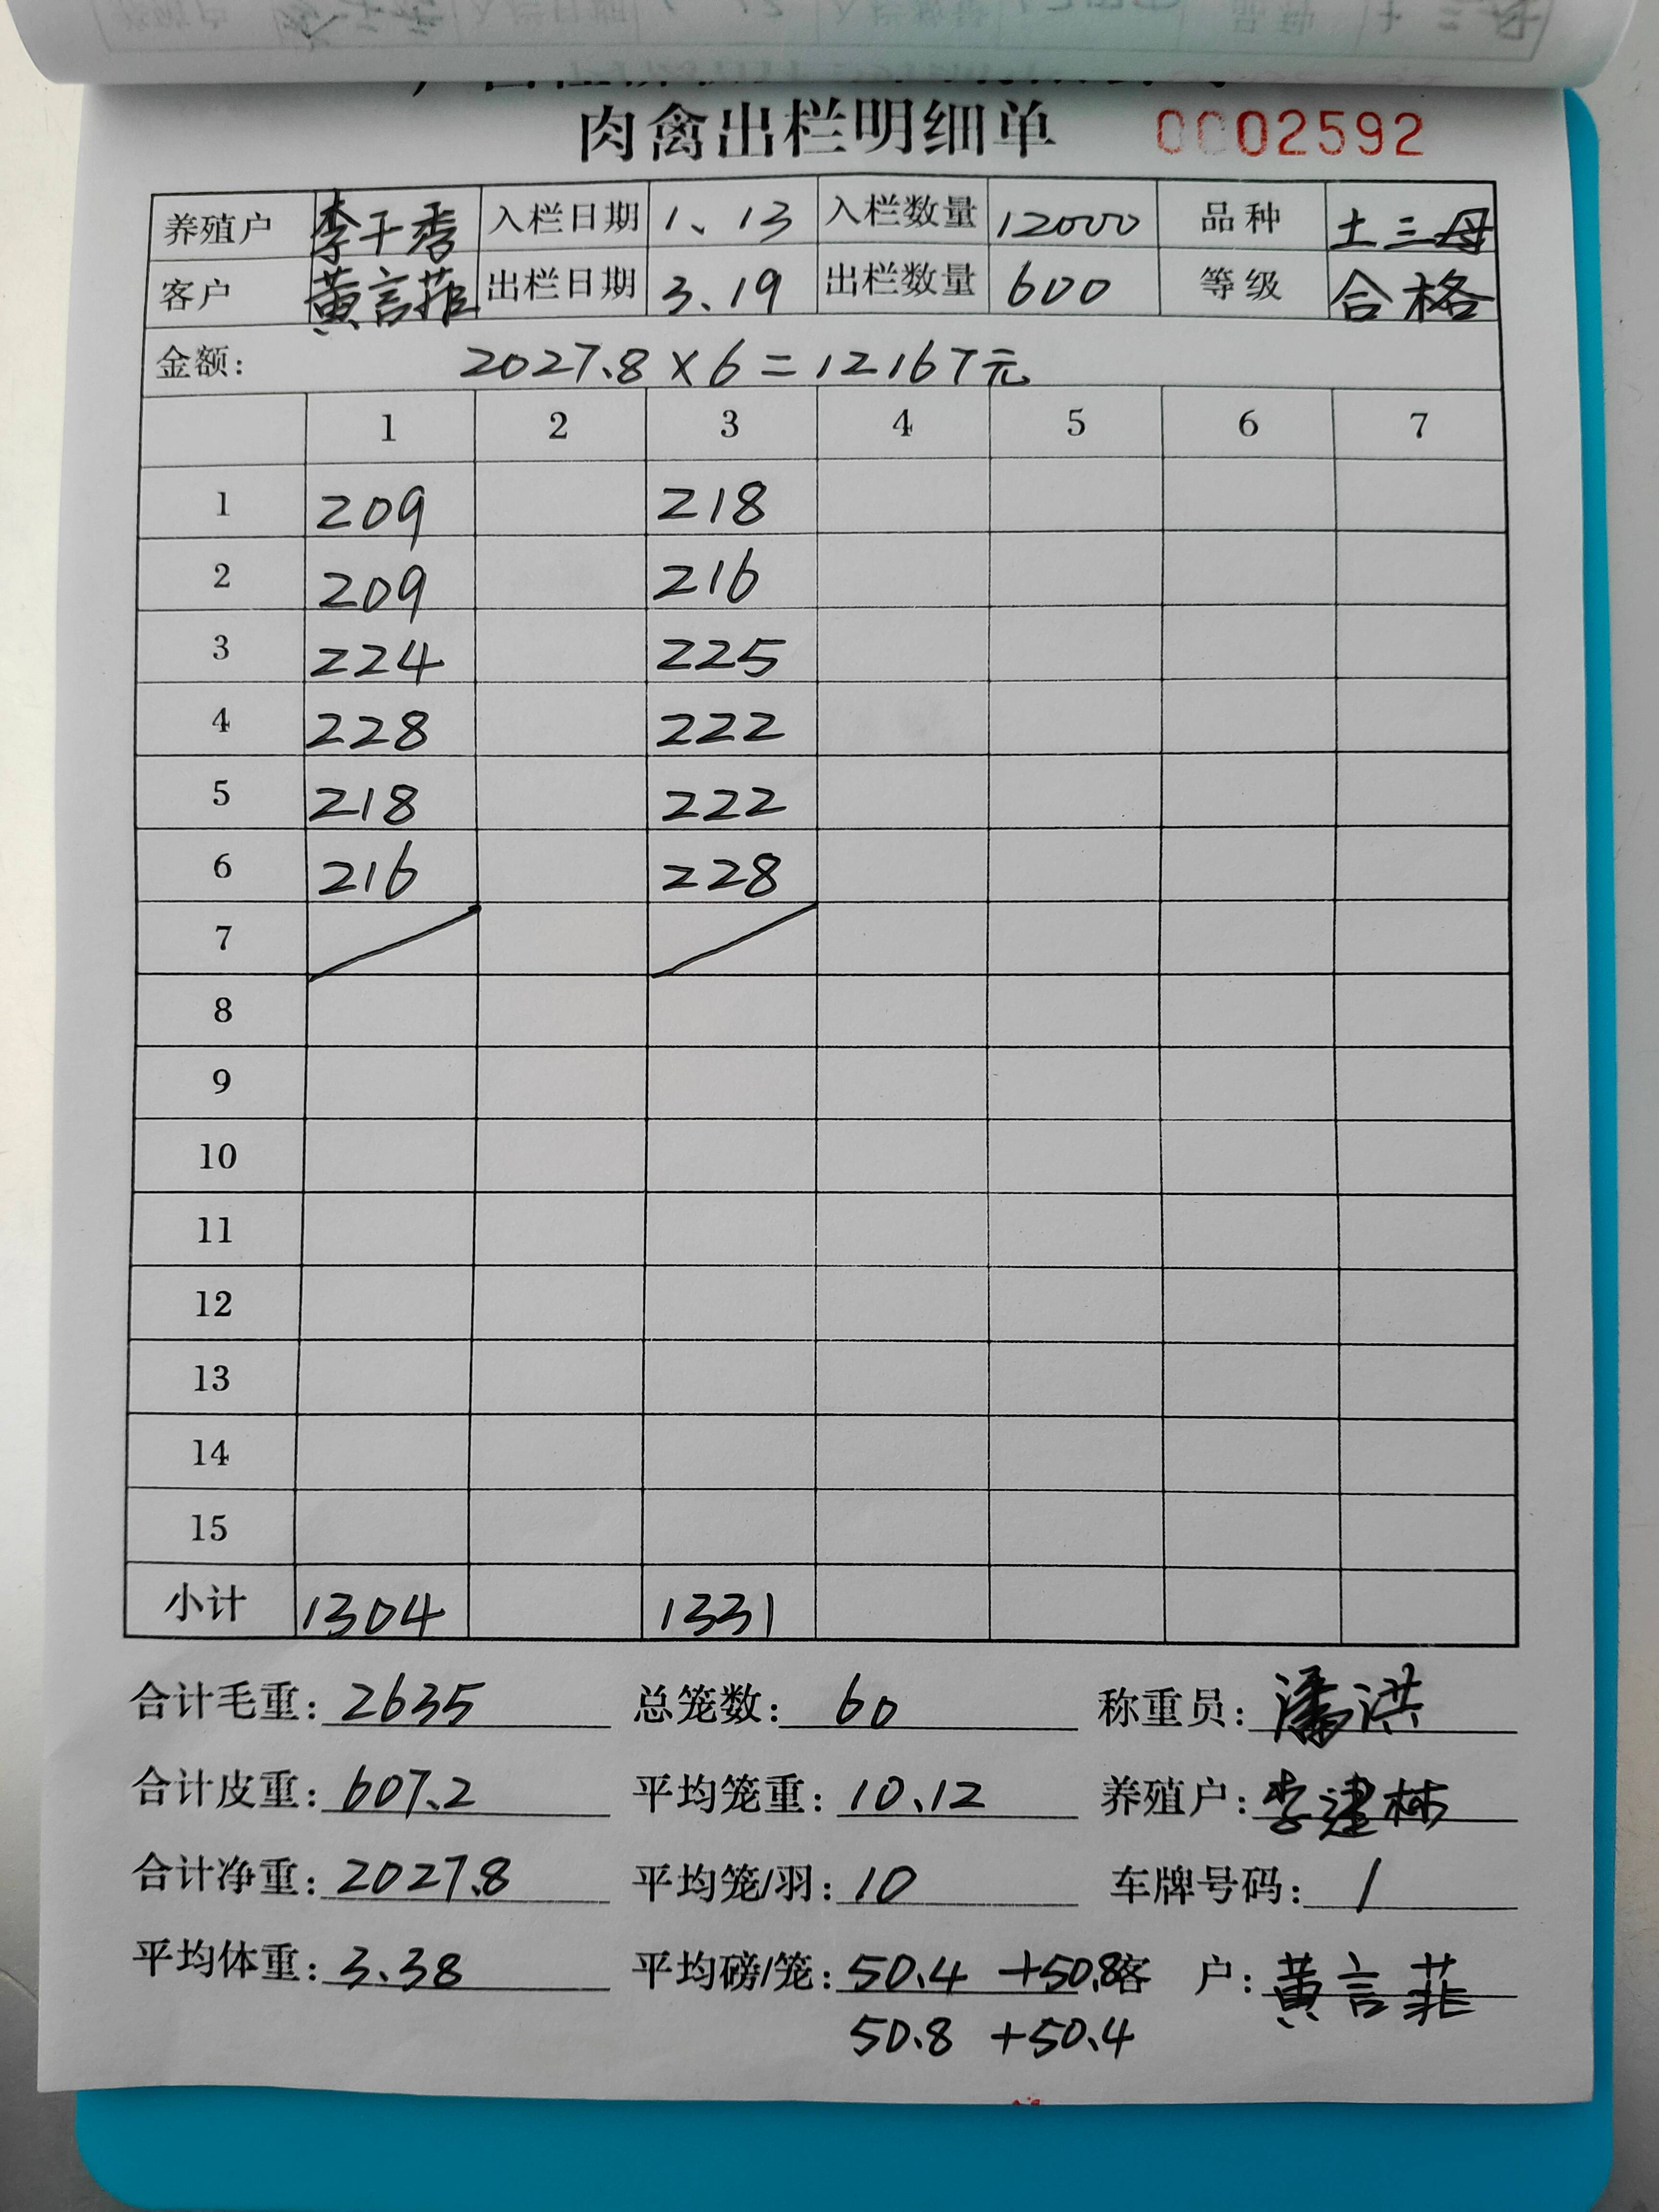 肉禽出栏明细单 0002592
养殖户 李千秀 入栏日期 1、13 入栏数量 12000 品种 土三母
客户 黄言菲 出栏日期 3.19 出栏数量 600 等级 合格
金额: 2027.8×6=12167元
1 2 3 4 5 6 7
1 209 218
2 209 216
3 224 225
4 228 222
5 218 222
6 216 228
7
8
9
10
11
12
13
14
15
小计 1304 1331
合计毛重: 2635 总笼数: 60 称重员: 潘洪
合计皮重: 607.2 平均笼重: 10.12 养殖户: 李建林
合计净重: 2027.8 平均笼/羽: 10 车牌号码: /
平均体重: 3.38 平均磅/笼: 50.4 +50.8 客 户: 黄言菲
50.8 +50.4